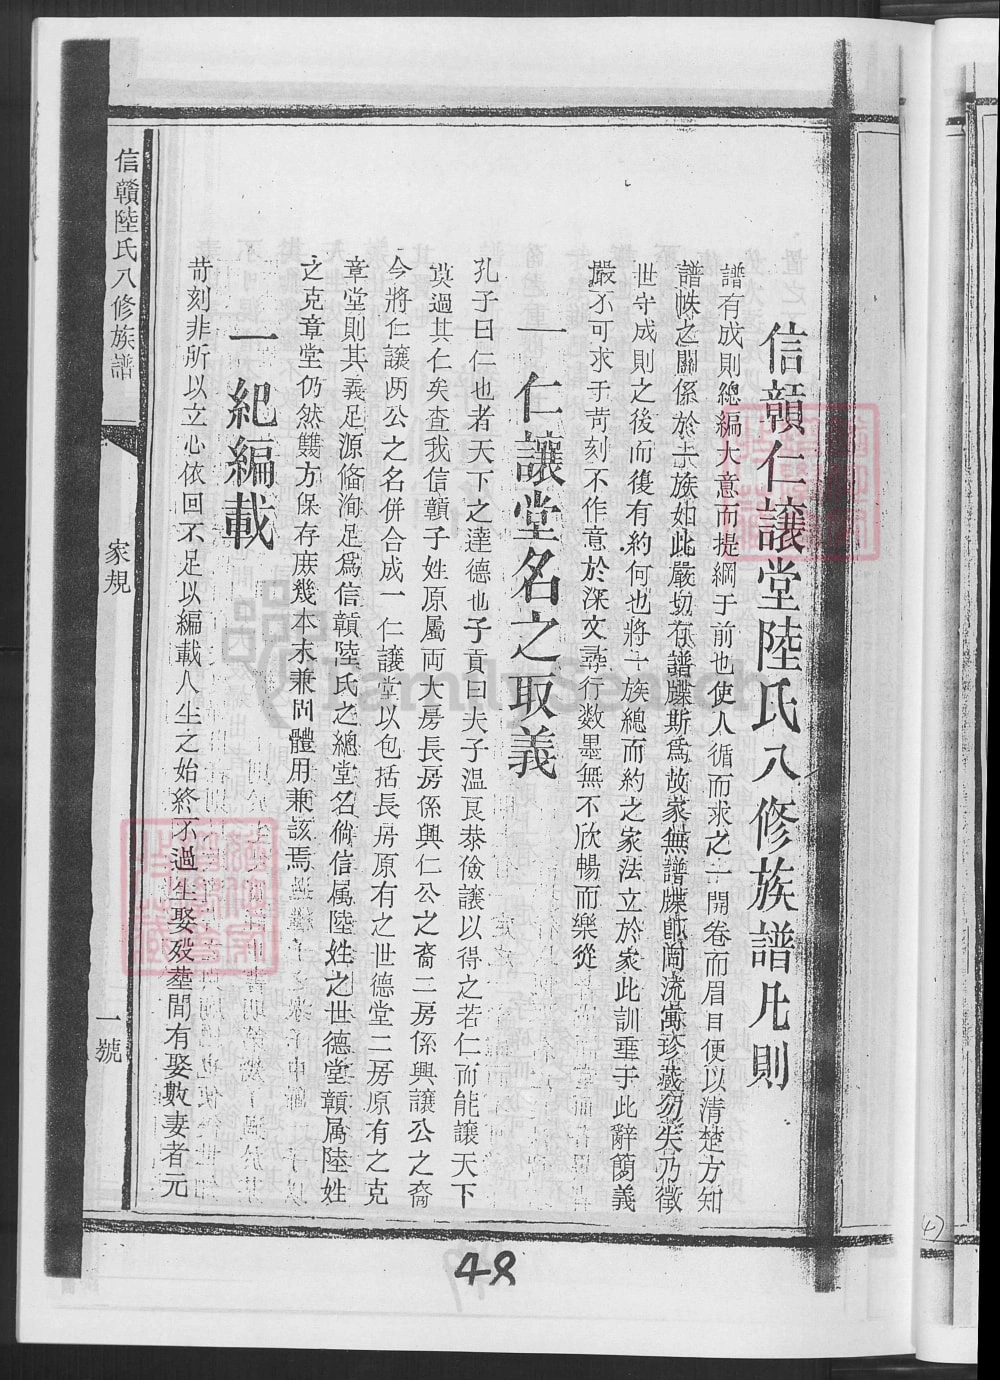 信贛仁讓堂陸氏八修族譜凡則
譜有成則總編大意而提綱于前也使人循而求之一開卷而眉目便以清楚方知
譜帙之關係於士族如此嚴切有譜牒斯爲故家無譜牒卽同流寓珍藏勿失乃徵
世守成則之後而復有約何也將一族總而約之家法立於家此訓垂于此辭簡義
嚴不可求于苛刻不作意於深文尋行数墨無不欣暢而樂從
一仁讓堂名之取義
孔子曰仁也者天下之達德也子貢曰夫子温良恭儉讓以得之若仁而能讓天下
莫過其仁矣查我信贛子姓原屬両大房長房係興仁公之裔二房係興讓公之裔
今將仁讓两公之名併合成一仁讓堂以包括長房原有之世德堂二房原有之克
章堂則其義足源俻洵足爲信贛陸氏之總堂名倘信属陸姓之世德堂贛属陸姓
之克章堂仍然雙方保存庶幾本末兼同體用兼該焉
一紀編載
苛刻非所以立心依回不足以編載人生之始終不過生娶殁塟間有娶數妻者元
信贛陸氏八修族譜
家規
一號
48